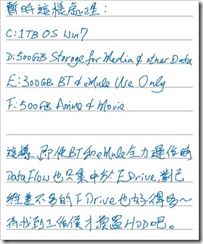 暫時這樣處理：
C:1TB OS Win7
D:500GB Storage for Media & other Data
E:300GB BT & eMule Use Only
F:500GB Anime & Movie
這樣即使BT和eMule全力運作時
Data Flow也只集中於E Drive,對已
經差不多的F Drive也好得多～
待找到工作後才換過HDD吧。